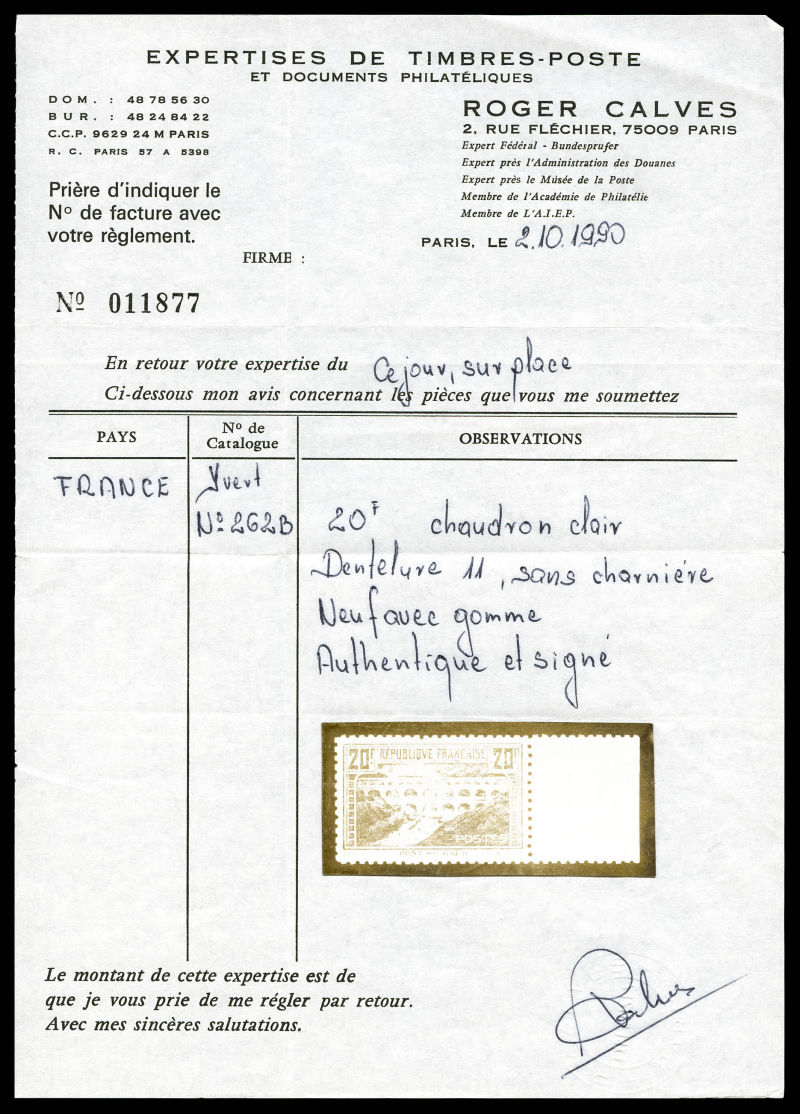 EXPERTISES DE TIMBRES-POSTE
ET DOCUMENTS PHILATÉLIQUES
DOM. : 48 78 56 30
BUR. : 48 24 84 22
C.C.P. 9629 24 M PARIS
R. C. PARIS 57 A 5398
ROGER CALVES
2, RUE FLÉCHIER, 75009 PARIS
Expert Fédéral - Bundesprufer
Expert près l'Administration des Douanes
Expert près le Musée de la Poste
Membre de l'Académie de Philatélie
Membre de L'A.I.E.P.
Prière d'indiquer le
Nº de facture avec
votre règlement.
PARIS, LE 2.10.1990
FIRME :
Nº 011877
En retour votre expertise du Ce jour, sur place
Ci-dessous mon avis concernant les pièces que vous me soumettez
PAYS
Nº de
Catalogue
OBSERVATIONS
FRANCE
Yvert
Nº 262B
20F chaudron clair
Dentelure 11, sans charnière
Neuf avec gomme
Authentique et signé
20F RÉPUBLIQUE FRANÇAISE 20F
POSTES
PONT DU GARD
Le montant de cette expertise est de
que je vous prie de me régler par retour.
Avec mes sincères salutations.
Calves